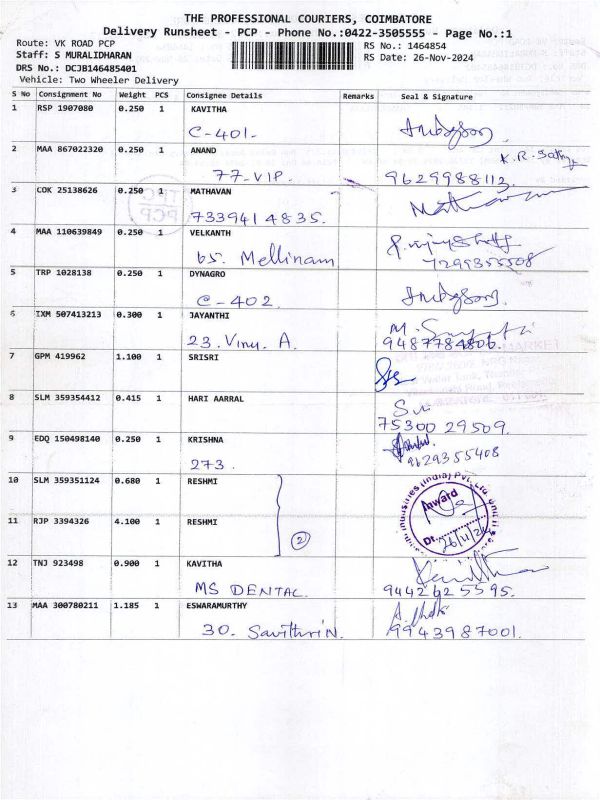 THE PROFESSIONAL COURIERS, COIMBATORE
Delivery Runsheet - PCP - Phone No.:0422-3505555 - Page No.:1
Route: VK ROAD PCP
RS No.: 1464854
Staff: S MURALIDHARAN
RS Date: 26-Nov-2024
DRS No.: DCJB146485401
Vehicle: Two Wheeler Delivery
S No Consignment No Weight PCS Consignee Details Remarks Seal & Signature
1 RSP 1907080 0.250 1 KAVITHA
C-401-
2 MAA 867022320 0.250 1 ANAND
77-VIP. 9629988113
3 COK 25138626 0.250 1 MATHAVAN
7339414835.
4 MAA 110639849 0.250 1 VELKANTH
65. Mellinam 7299355508
5 TRP 1028138 0.250 1 DYNAGRO
C-402
6 IXM 507413213 0.300 1 JAYANTHI
23. Viny. A. 9487784806.
7 GPM 419962 1.100 1 SRISRI
8 SLM 359354412 0.415 1 HARI AARRAL
Sri
75300 29509.
9 EDQ 150498140 0.250 1 KRISHNA
273. 9629355408
10 SLM 359351124 0.680 1 RESHMI
Inward
11 RJP 3394326 4.100 1 RESHMI
2
Dt. 26/11/24
12 TNJ 923498 0.900 1 KAVITHA
MS DENTAL. 9442625595.
13 MAA 300780211 1.185 1 ESWARAMURTHY
30. Savithri N. 9943987001.